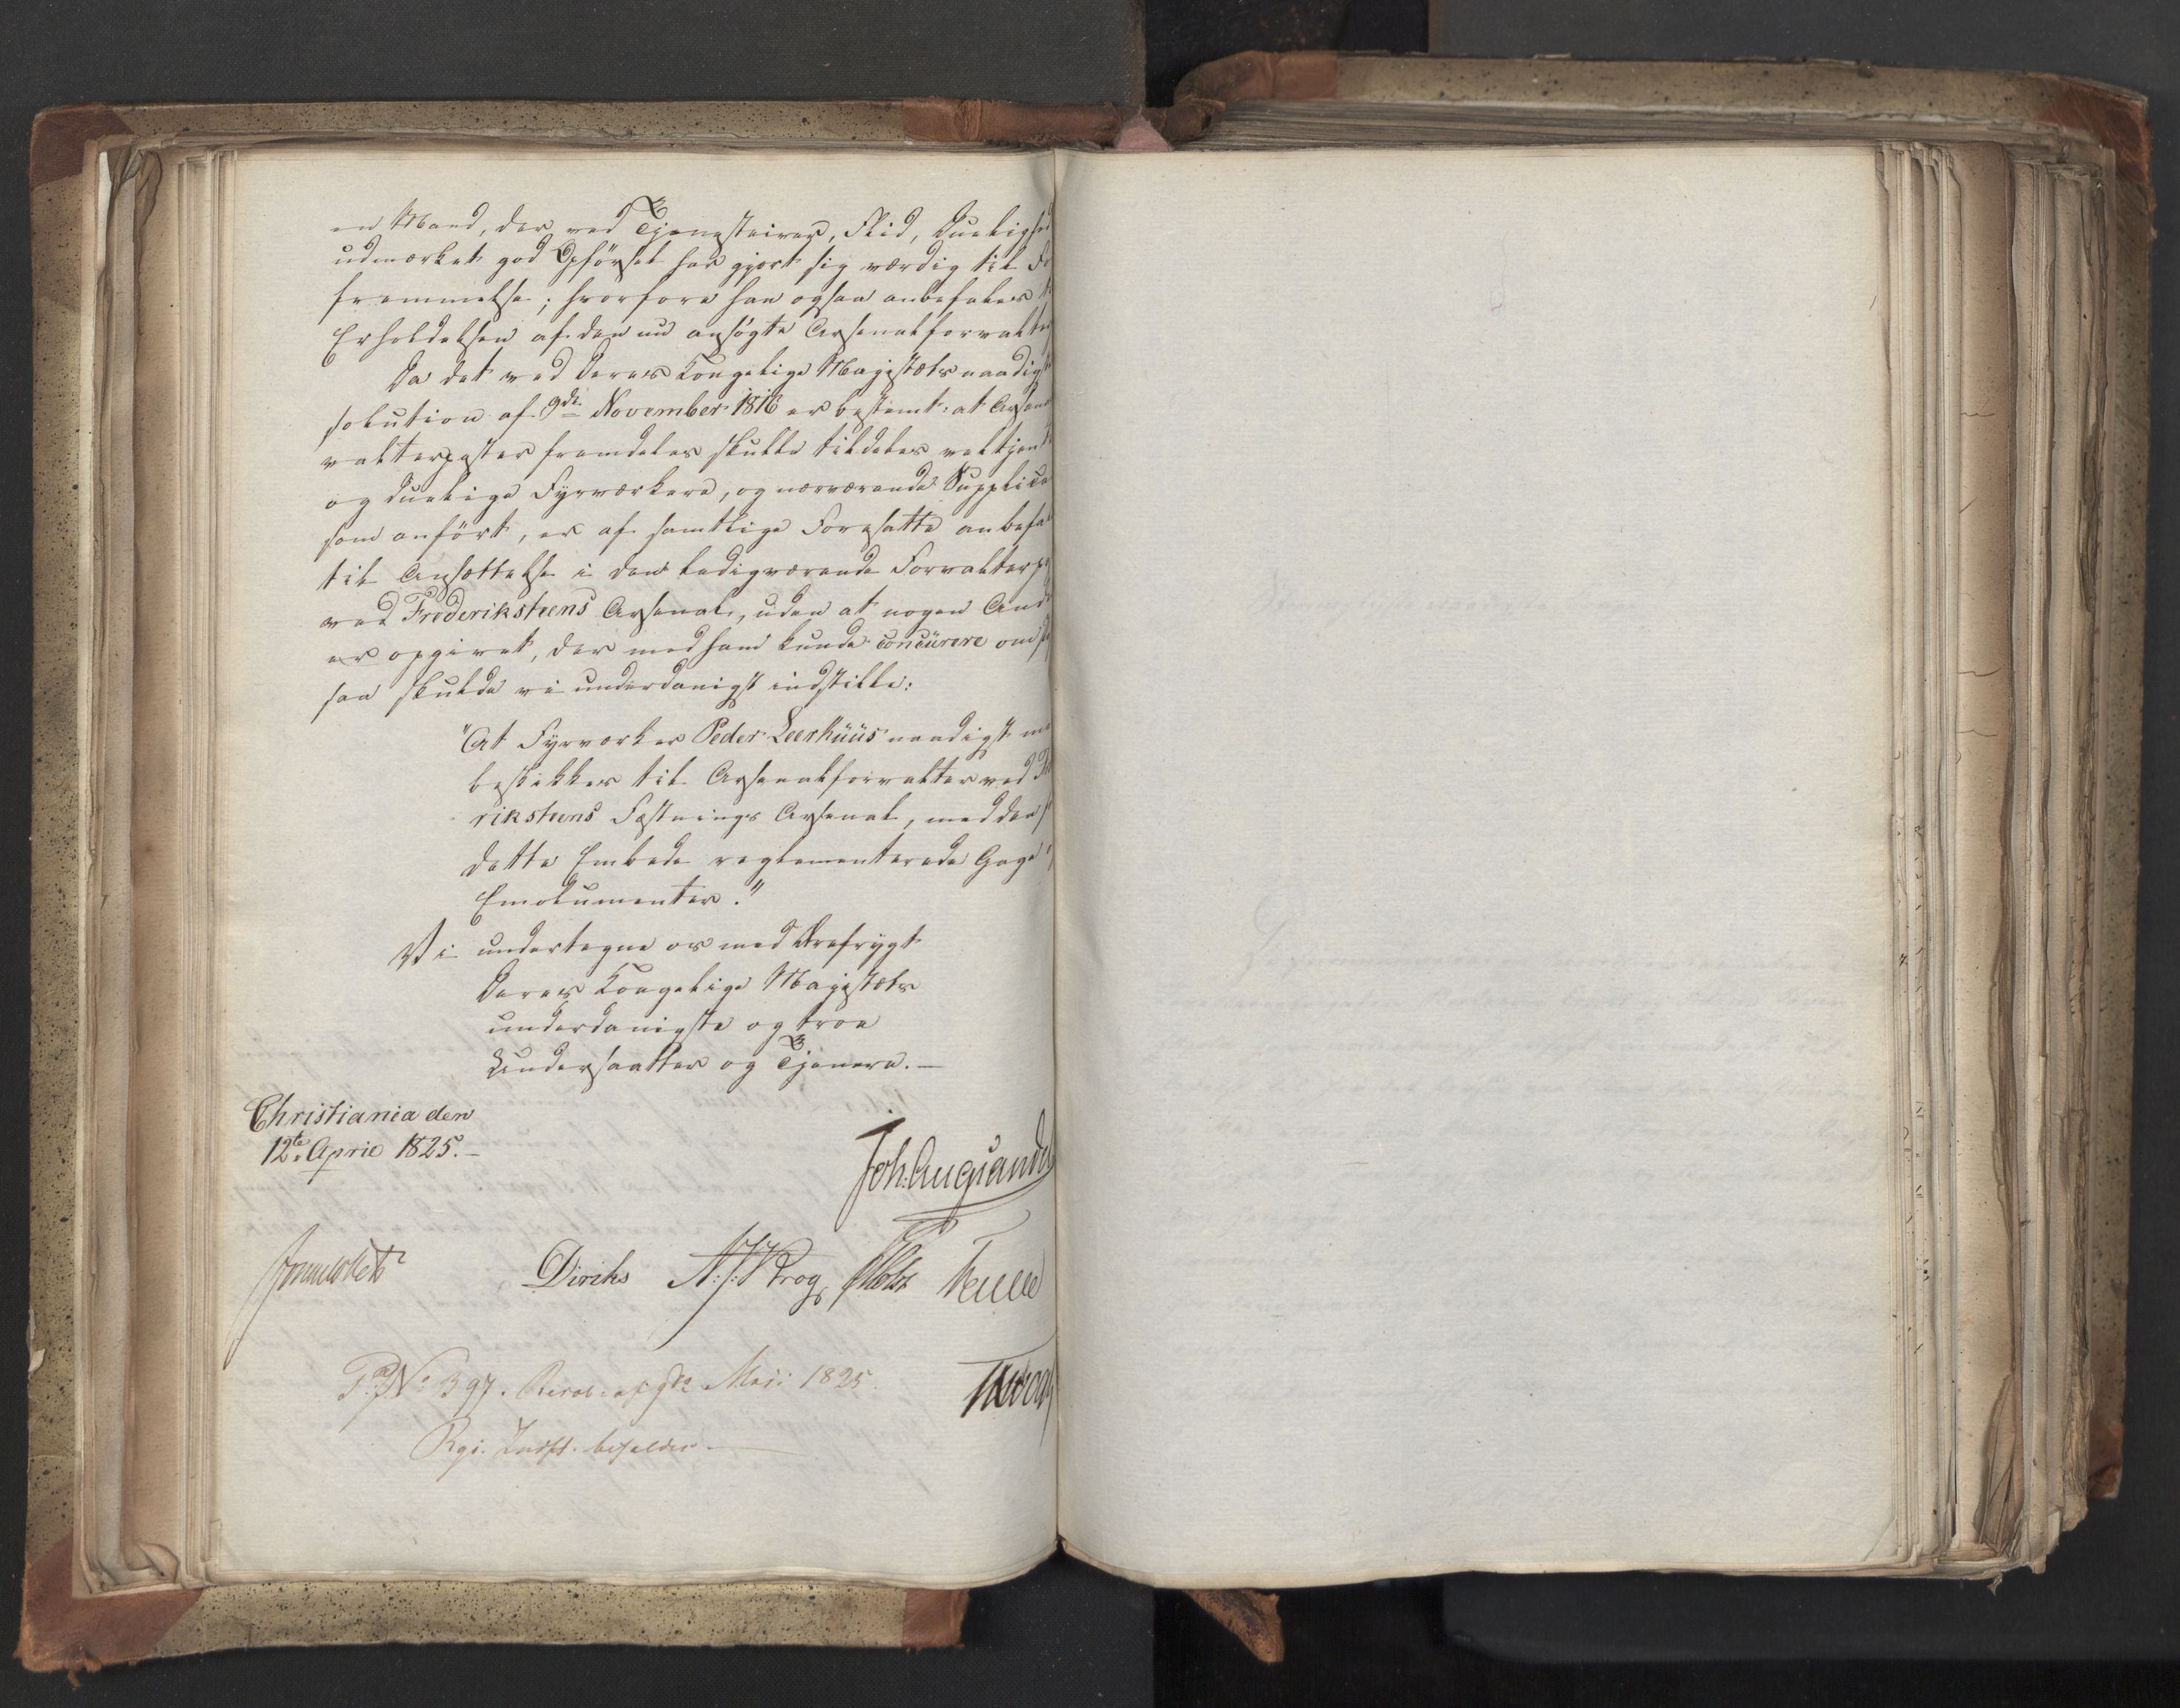 en Mand, der ved Tjenesteiver, Flid, Duelighed
udmærket god Opførsel har gjort sig værdig til
fremmelse; hvorfore han ogsaa anbefales
Erholdelsen af den nu ansøgte Arsenalforvalter
Da det ved Deres Kongelige Majestæts naadigste
solution af 9de November 1816 er bestemt: at Arsenal
valterposter fremdeles skulle tildeles veltjente
og duelige Fyrværkere, og nærværende Supplicant
som anført, er af samtlige Foresatte anbefalet
til Ansættelse i den ledigværende Forvalterpost
ved Frederiksteens Arsenal, uden at nogen Anden
er opgivet, der med ham kunde concürere om
saa skulde vi underdanigst indstille:
"At Fyrværker Peder Leerhüüs naadigst
beskikkes til Arsenalforvalter ved
riksteens Fæstnings Arsenal, med den
dette Embede reglementerede Gage
Emolumenter."
Vi undertegne os med Ærefrygt
Deres Kongelige Majestæts
underdanigste og troe
Undersaatter og Tjenere.—
Christiania den
12te April 1825.—
Joh. Aug. Sandels
Diriks A: J: Krog Holst
P. No 397. Resol. af 9de Maji 1825.
Rgj. Indst. bifaldes.—